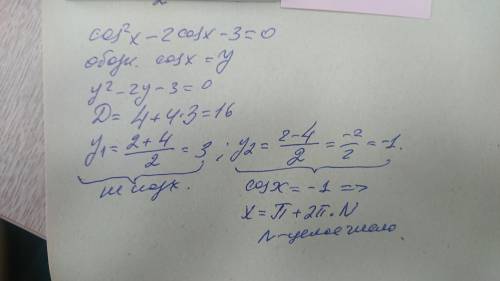 cos²x - 2cosx - 3 = 0
обозн. cosx = y
y² - 2y - 3 = 0
D = 4 + 4·3 = 16
y₁ = (2+4)/2 = 3 ; y₂ = (2-4)/2 = -2/2 = -1.
не подх.
cosx = -1 =>
x = π + 2π·N
N - целое число.